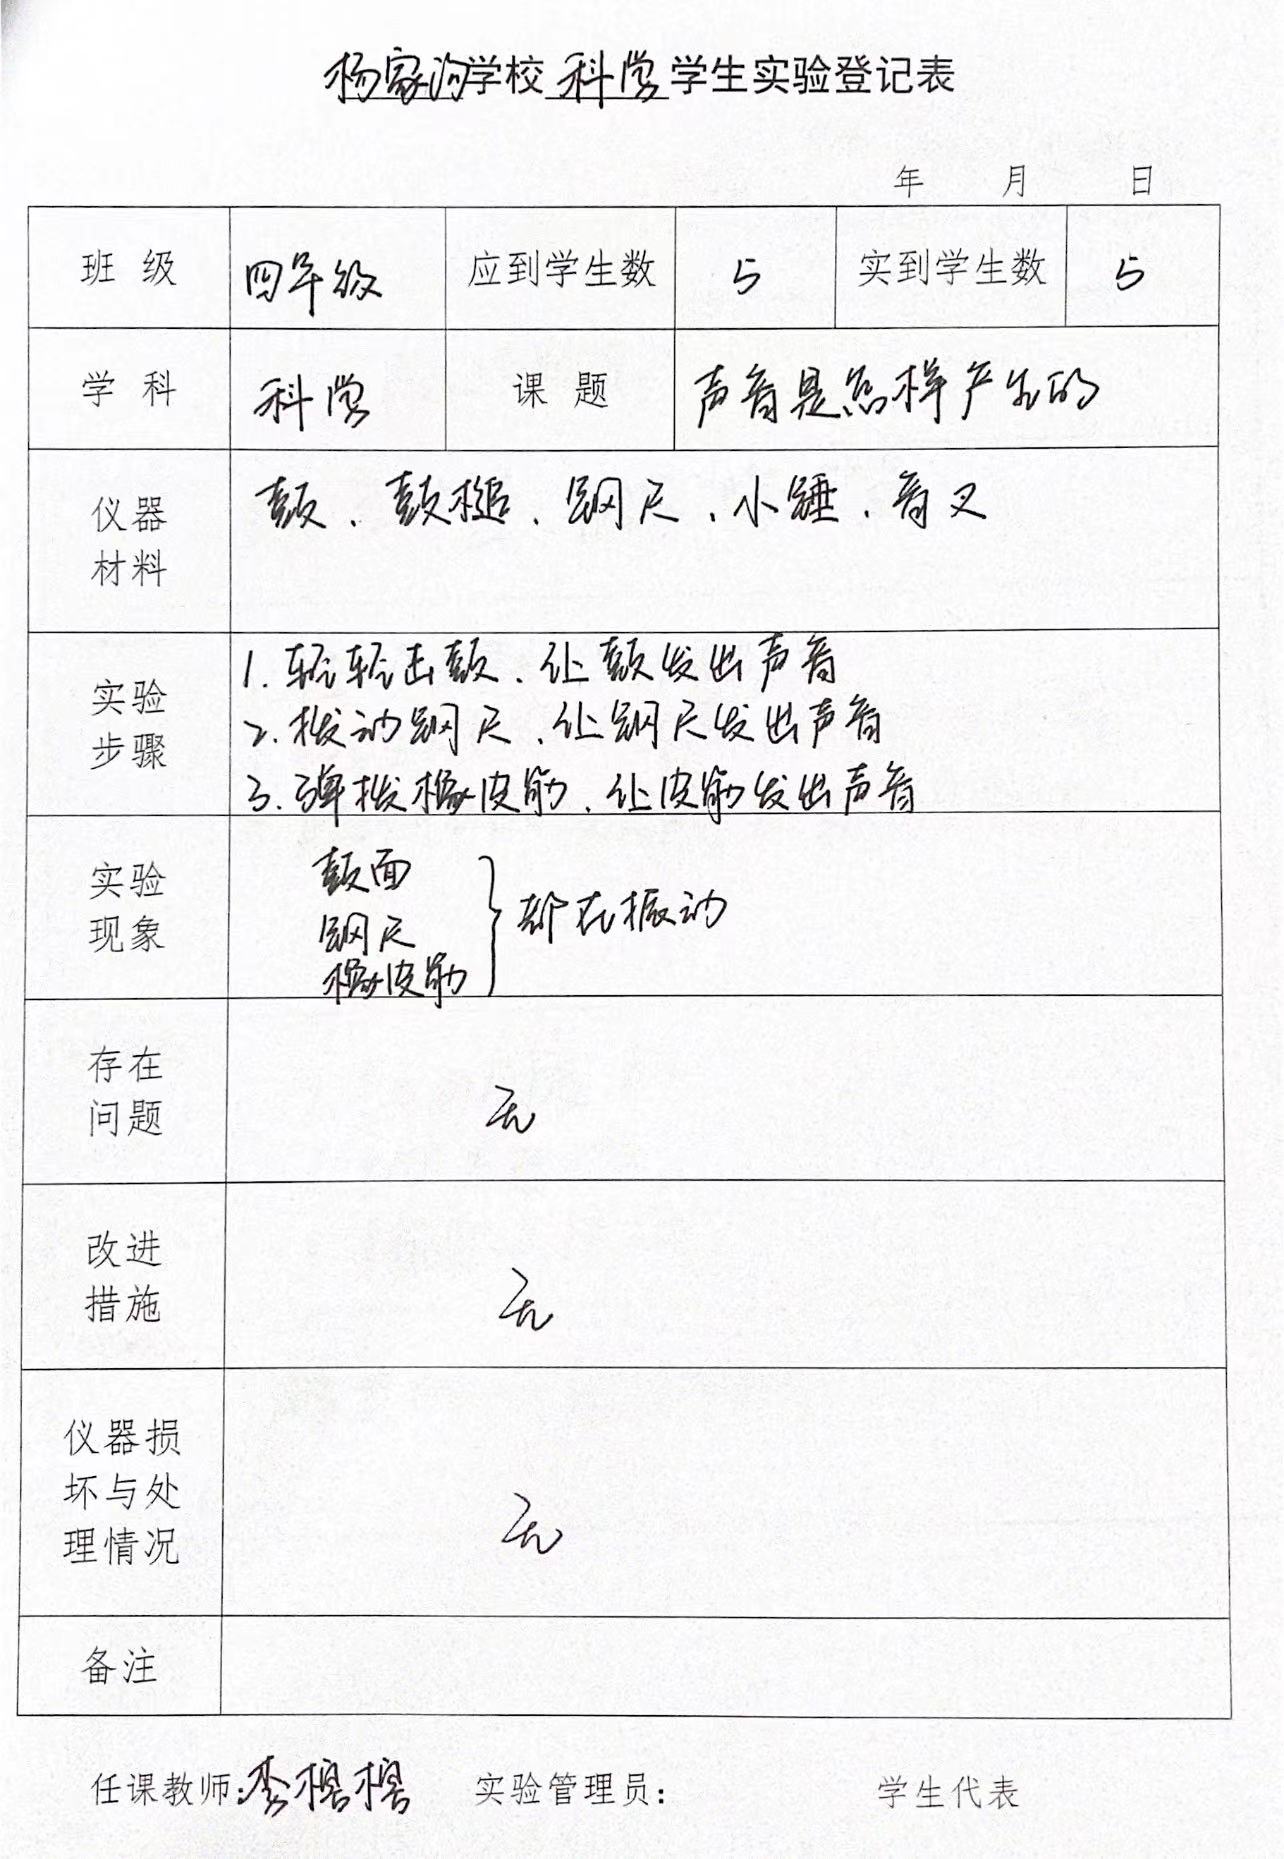 杨家沟学校 科学 学生实验登记表
年 月 日
班 级 四年级 应到学生数 5 实到学生数 5
学 科 科学 课 题 声音是怎样产生的
仪器
材料
鼓、鼓槌、钢尺、小锤、音叉
实验
步骤
1. 轻轻击鼓、让鼓发出声音
2. 拨动钢尺、让钢尺发出声音
3. 弹拨橡皮筋、让皮筋发出声音
实验
现象
鼓面
钢尺
橡皮筋
都在振动
存在
问题
无
改进
措施
无
仪器损
坏与处
理情况
无
备注
任课教师: 实验管理员: 学生代表